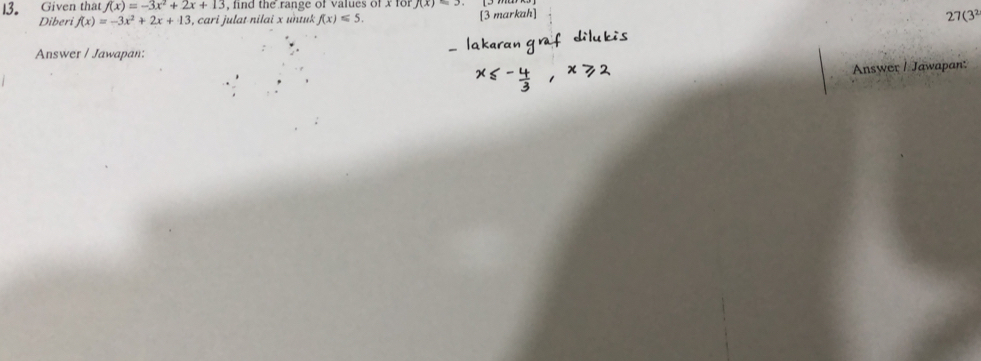 13. Given that f(x) = −3x² + 2x + 13, find the range of values of x for f(x) ≤ 5.
Diberi f(x) = −3x² + 2x + 13, cari julat nilai x untuk f(x) ≤ 5. [3 markah]
Answer / Jawapan:
- lakaran graf dilukis
x ≤ -4/3 , x ≥ 2
27(3²
Answer / Jawapan: